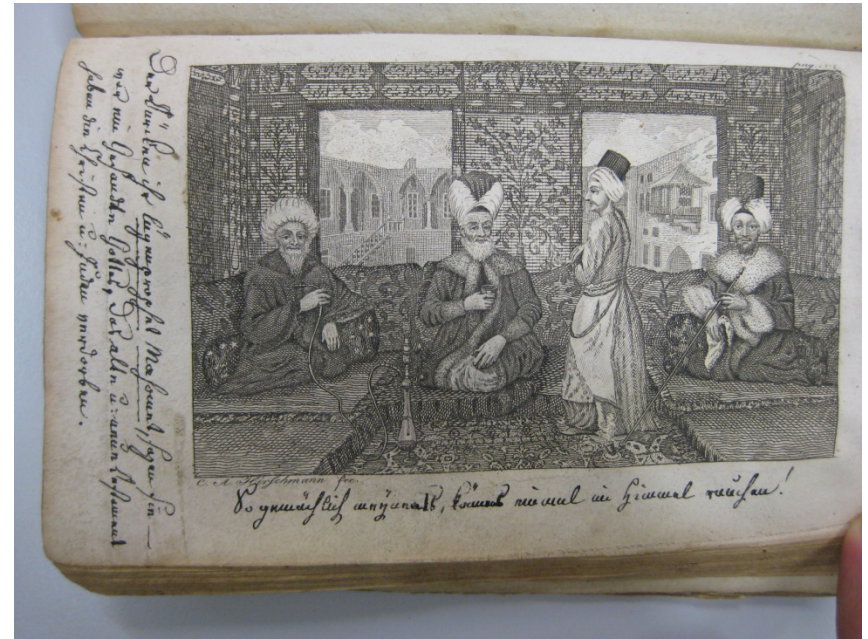 Der Türken ihr Lügenprophet Mahomet, sagen sie —
war ein Gesandter Gottes, das alte u: neue Testament
haben die Christen u: Juden verdorben.
C. A. Hirschmann fec.
So gemächlich, könnens einmal im Himmel rauchen!